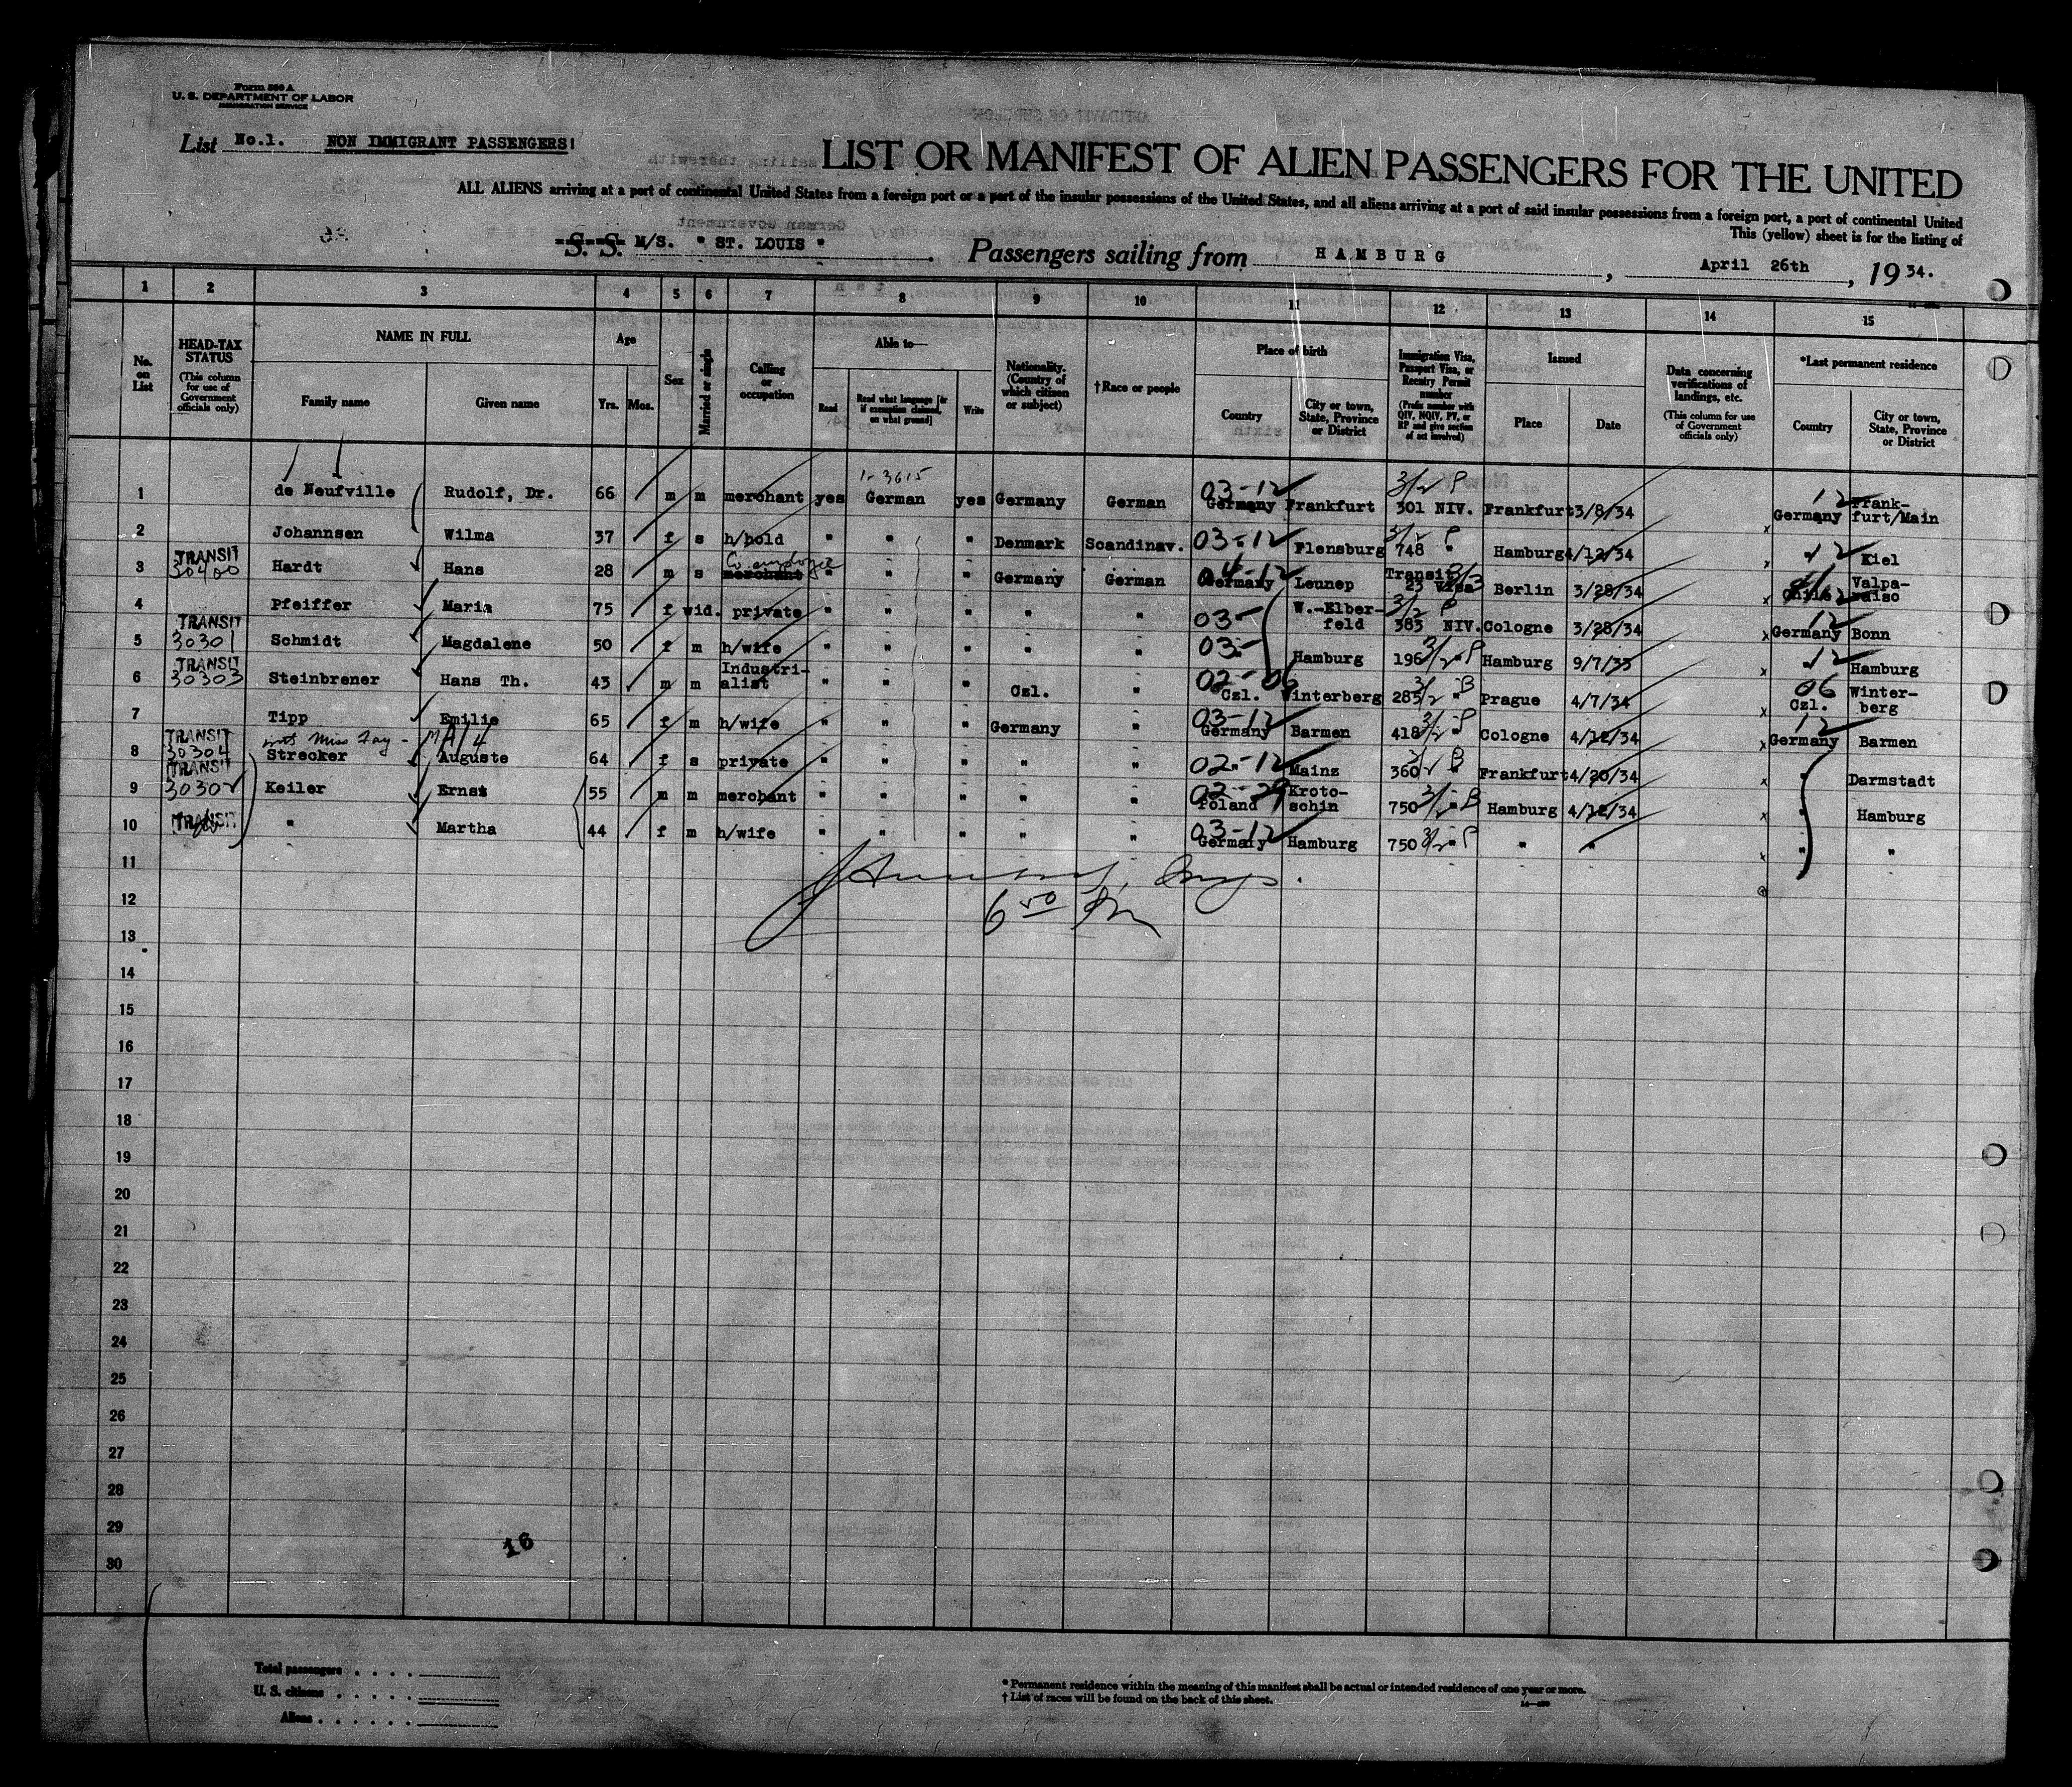 Form 500 A
U. S. DEPARTMENT OF LABOR
IMMIGRATION SERVICE
List No.1. NON IMMIGRANT PASSENGERS!
LIST OR MANIFEST OF ALIEN PASSENGERS FOR THE UNITED
ALL ALIENS arriving at a port of continental United States from a foreign port or a port of the insular possessions of the United States, and all aliens arriving at a port of said insular possessions from a foreign port, a port of continental United
This (yellow) sheet is for the listing of
S. S. M/S. " ST. LOUIS " . Passengers sailing from HAMBURG , April 26th , 19 34.
1 2 3 4 5 6 7 8 9 10 11 12 13 14 15
No. on List
HEAD-TAX STATUS (This column for use of Government officials only)
NAME IN FULL
Family name
Given name
Age
Yrs. Mos.
Sex
Married or single
Calling or occupation
Able to—
Read
Read what language [or if exemption claimed, on what ground]
Write
Nationality. (Country of which citizen or subject)
†Race or people
Place of birth
Country
City or town, State, Province or District
Immigration Visa, Passport Visa, or Reentry Permit number (Prefix number with QIV, NQIV, PV, or RP and give section of act involved)
Issued
Place
Date
Data concerning verifications of landings, etc. (This column for use of Government officials only)
*Last permanent residence
Country
City or town, State, Province or District
1-3615
1 de Neufville Rudolf, Dr. 66 m m merchant yes German yes Germany German 03-12 Germany Frankfurt 3/2 P 301 NIV. Frankfurt 3/8/34 12 Germany Frank-furt/Main
2 Johannsen Wilma 37 f s h/hold " " " Denmark Scandinav. 03-12 Flensburg 3/2 P 748 " Hamburg 4/12/34 x 12 Kiel
3 TRANSIT 30400 Hardt Hans 28 m s merchant Co employee " " " Germany German 04-12 Germany Lennep Transit 3/3 23 Visa Berlin 3/28/34 x Chile Valpa-raiso
4 Pfeiffer Maria 75 f wid. private " " " " " 03- W.-Elber-feld 3/2 P 383 NIV. Cologne 3/28/34 x 12 Germany Bonn
5 TRANSIT 30301 Schmidt Magdalene 50 f m h/wife " " " " " 03- Hamburg 196 3/2 " P Hamburg 9/7/33 x 12 Hamburg
6 TRANSIT 30303 Steinbrener Hans Th. 43 m m Industri-alist " " " Czl. " 02-06 Czl. Winterberg 285 3/2 " B Prague 4/7/34 x 06 Czl. Winter-berg
7 Tipp Emilie 65 f m h/wife " " " Germany " 03-12 Germany Barmen 418 3/2 " P Cologne 4/12/34 x 12 Germany Barmen
8 TRANSIT 30304 Strecker Auguste 64 f s private " " " " " 02-12 Mainz 360 3/2 " B Frankfurt 4/20/34 x " Darmstadt
9 TRANSIT 30302 Keiler Ernst 55 m m merchant " " " " " 02-29 Poland Kroto-schin 750 3/2 " B Hamburg 4/12/34 x " Hamburg
10 TRANSIT " Martha 44 f m h/wife " " " " " 03-12 Germany Hamburg 750 3/2 " P " " x " "
11
12
6 50 Pm
13
14
15
16
17
18
19
20
21
22
23
24
25
26
27
28
29
30
16
Total passengers . . . .
U. S. citizens . . . . .
Aliens . . . . . .
* Permanent residence within the meaning of this manifest shall be actual or intended residence of one year or more.
† List of races will be found on the back of this sheet.